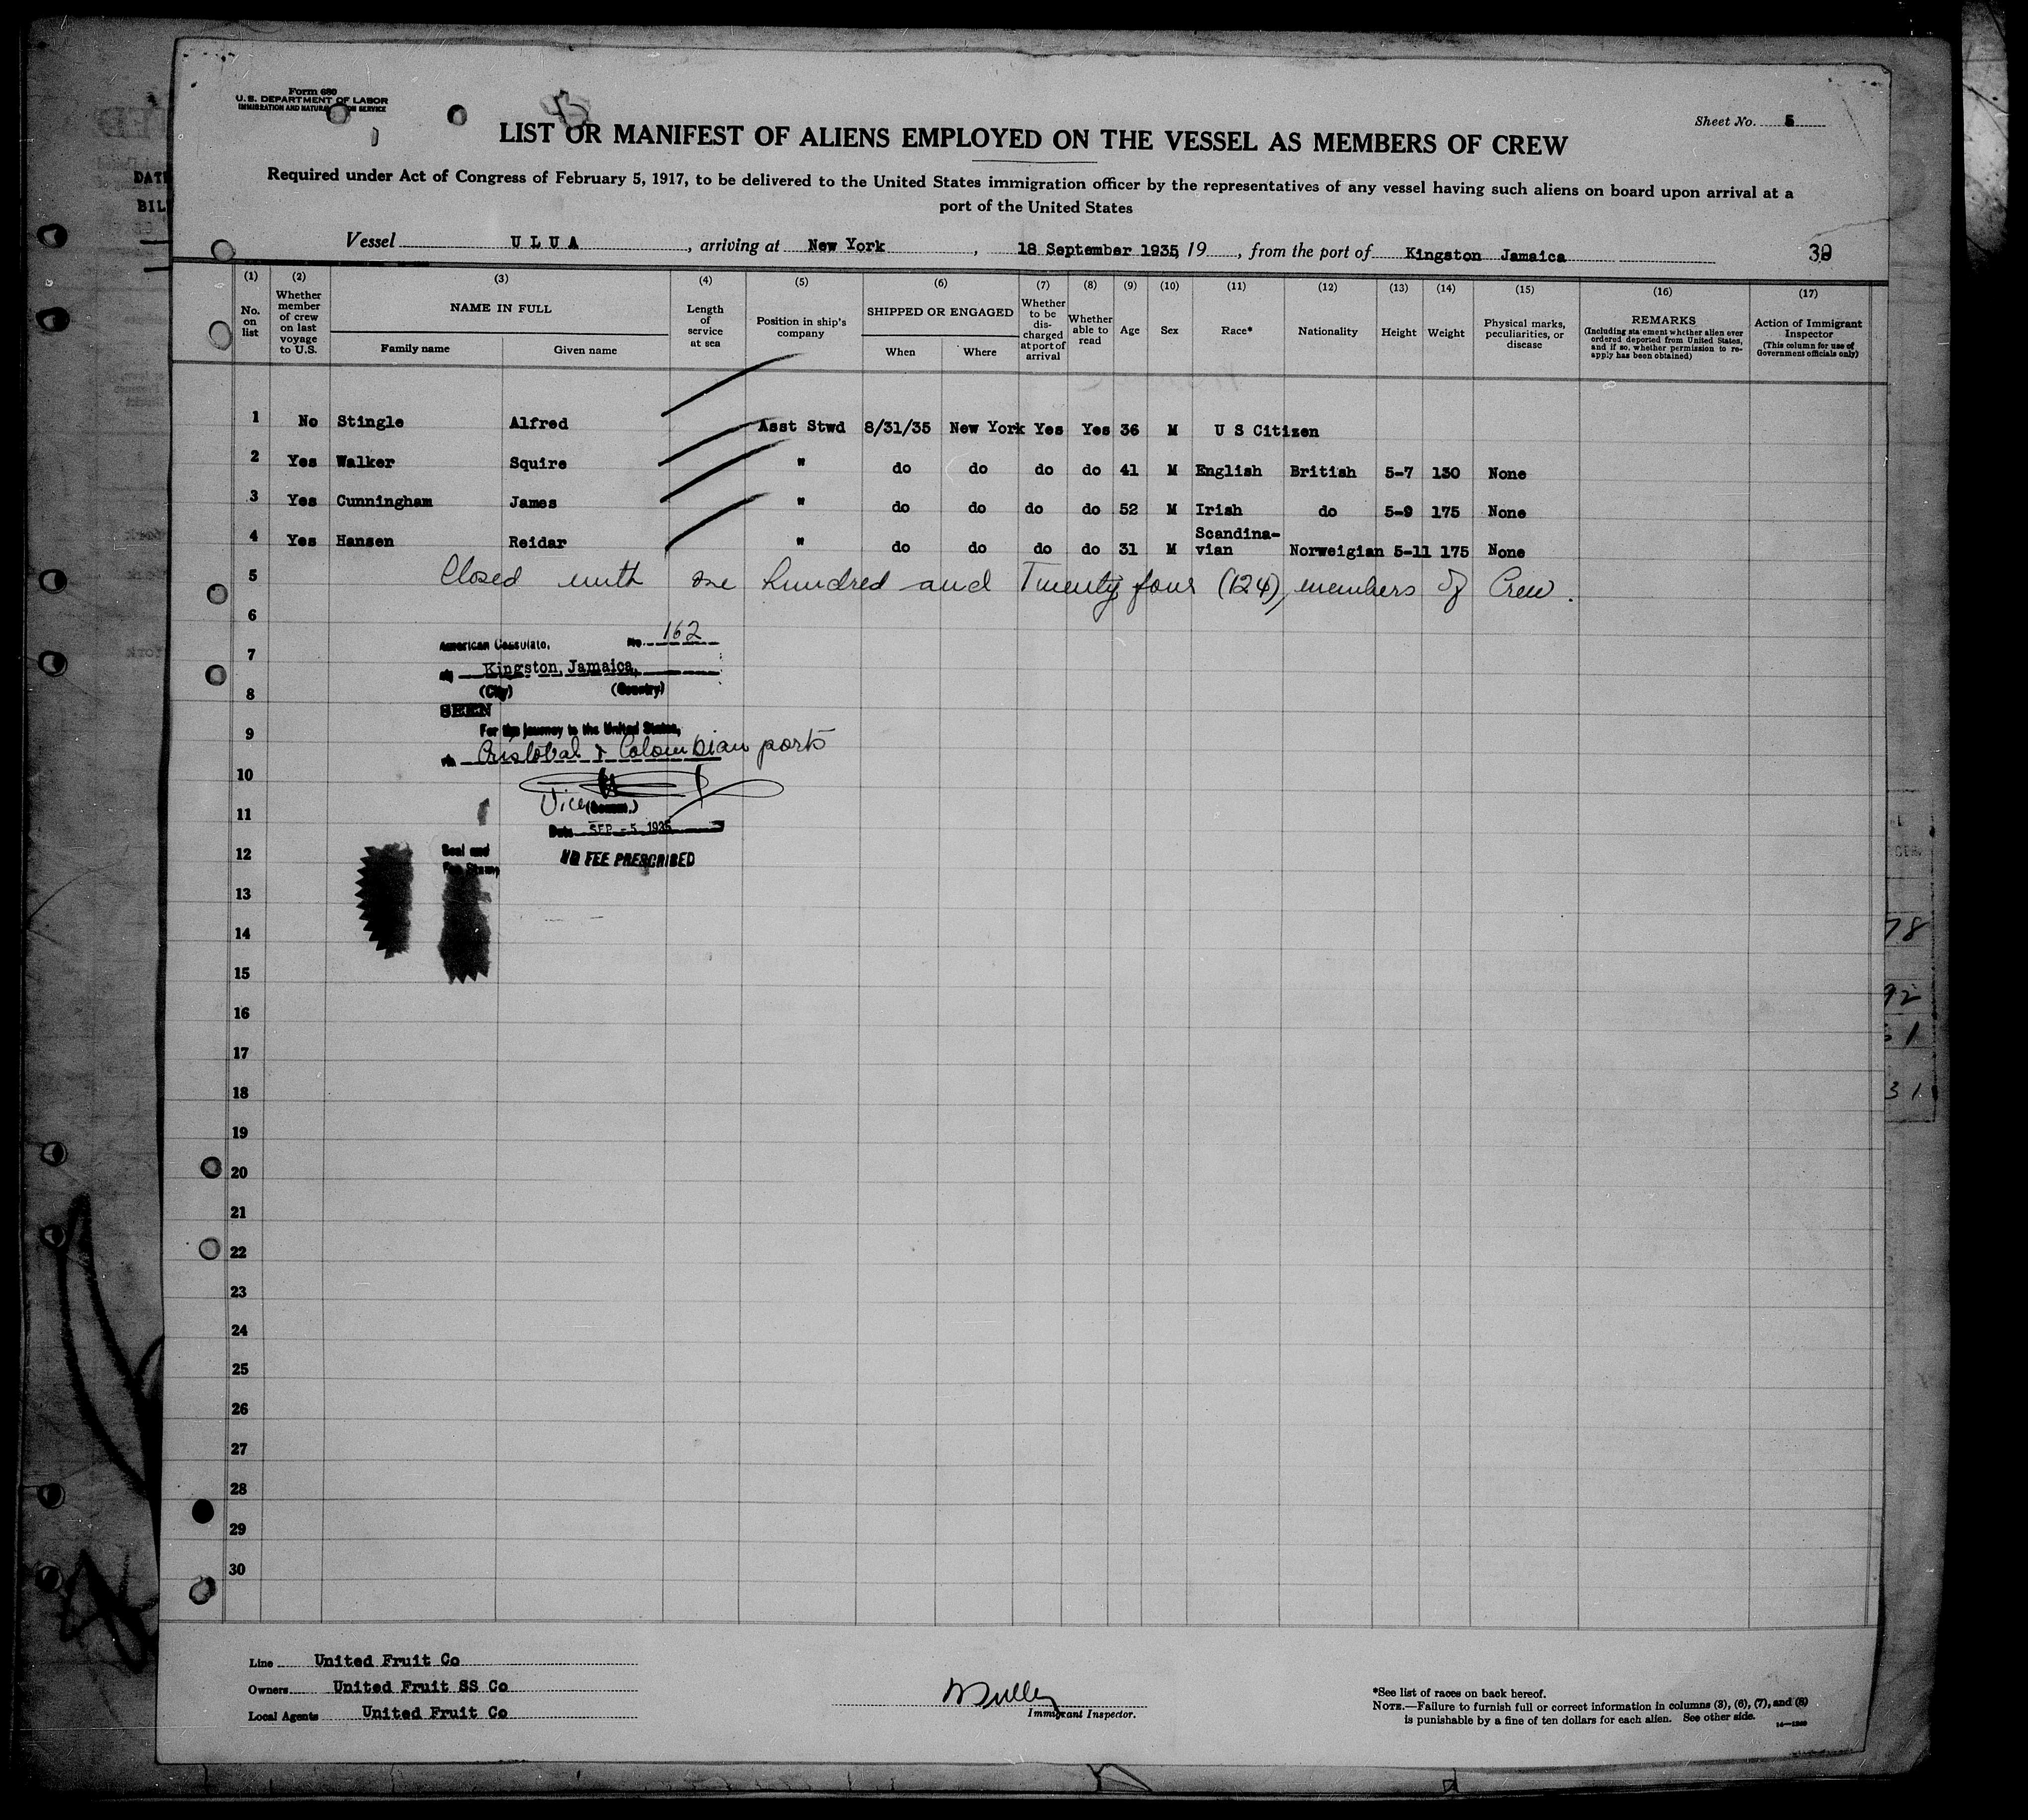 Form 680
U.S. DEPARTMENT OF LABOR
IMMIGRATION AND NATURALIZATION SERVICE
Sheet No. 5
LIST OR MANIFEST OF ALIENS EMPLOYED ON THE VESSEL AS MEMBERS OF CREW
Required under Act of Congress of February 5, 1917, to be delivered to the United States immigration officer by the representatives of any vessel having such aliens on board upon arrival at a
port of the United States
Vessel ULUA, arriving at New York, 18 September 1935, 19, from the port of Kingston Jamaica
(1) (2) (3) (4) (5) (6) (7) (8) (9) (10) (11) (12) (13) (14) (15) (16) (17)
No. on list
Whether member of crew on last voyage to U.S.
NAME IN FULL
Family name Given name
Length of service at sea
Position in ship's company
SHIPPED OR ENGAGED
When Where
Whether to be discharged at port of arrival
Whether able to read
Age
Sex
Race*
Nationality
Height
Weight
Physical marks, peculiarities, or disease
REMARKS
(Including statement whether alien ever ordered deported from United States, and if so, whether permission to reapply has been obtained)
Action of Immigrant Inspector
(This column for use of Government officials only)
1 No Stingle Alfred Asst Stwd 8/31/35 New York Yes Yes 36 M U S Citizen
2 Yes Walker Squire " do do do do 41 M English British 5-7 130 None
3 Yes Cunningham James " do do do do 52 M Irish do 5-9 175 None
4 Yes Hansen Reidar " do do do do 31 M Scandina-vian Norweigian 5-11 175 None
5 Closed with one hundred and Twenty four (124), members of Crew.
6
American Consulate, No. 162
7
at Kingston, Jamaica,
(City) (Country)
8
SEEN
For the journey to the United States,
9
via Cristobal & Colombian ports
10
Vice (Consul.)
11
Date SEP -5 1935
12
Seal and
Fee Stamp
NO FEE PRESCRIBED
13
14
15
16
17
18
19
20
21
22
23
24
25
26
27
28
29
30
Line United Fruit Co
Owners United Fruit SS Co
Local Agents United Fruit Co
Immigrant Inspector.
*See list of races on back hereof.
NOTE.—Failure to furnish full or correct information in columns (3), (6), (7), and (8)
is punishable by a fine of ten dollars for each alien. See other side.